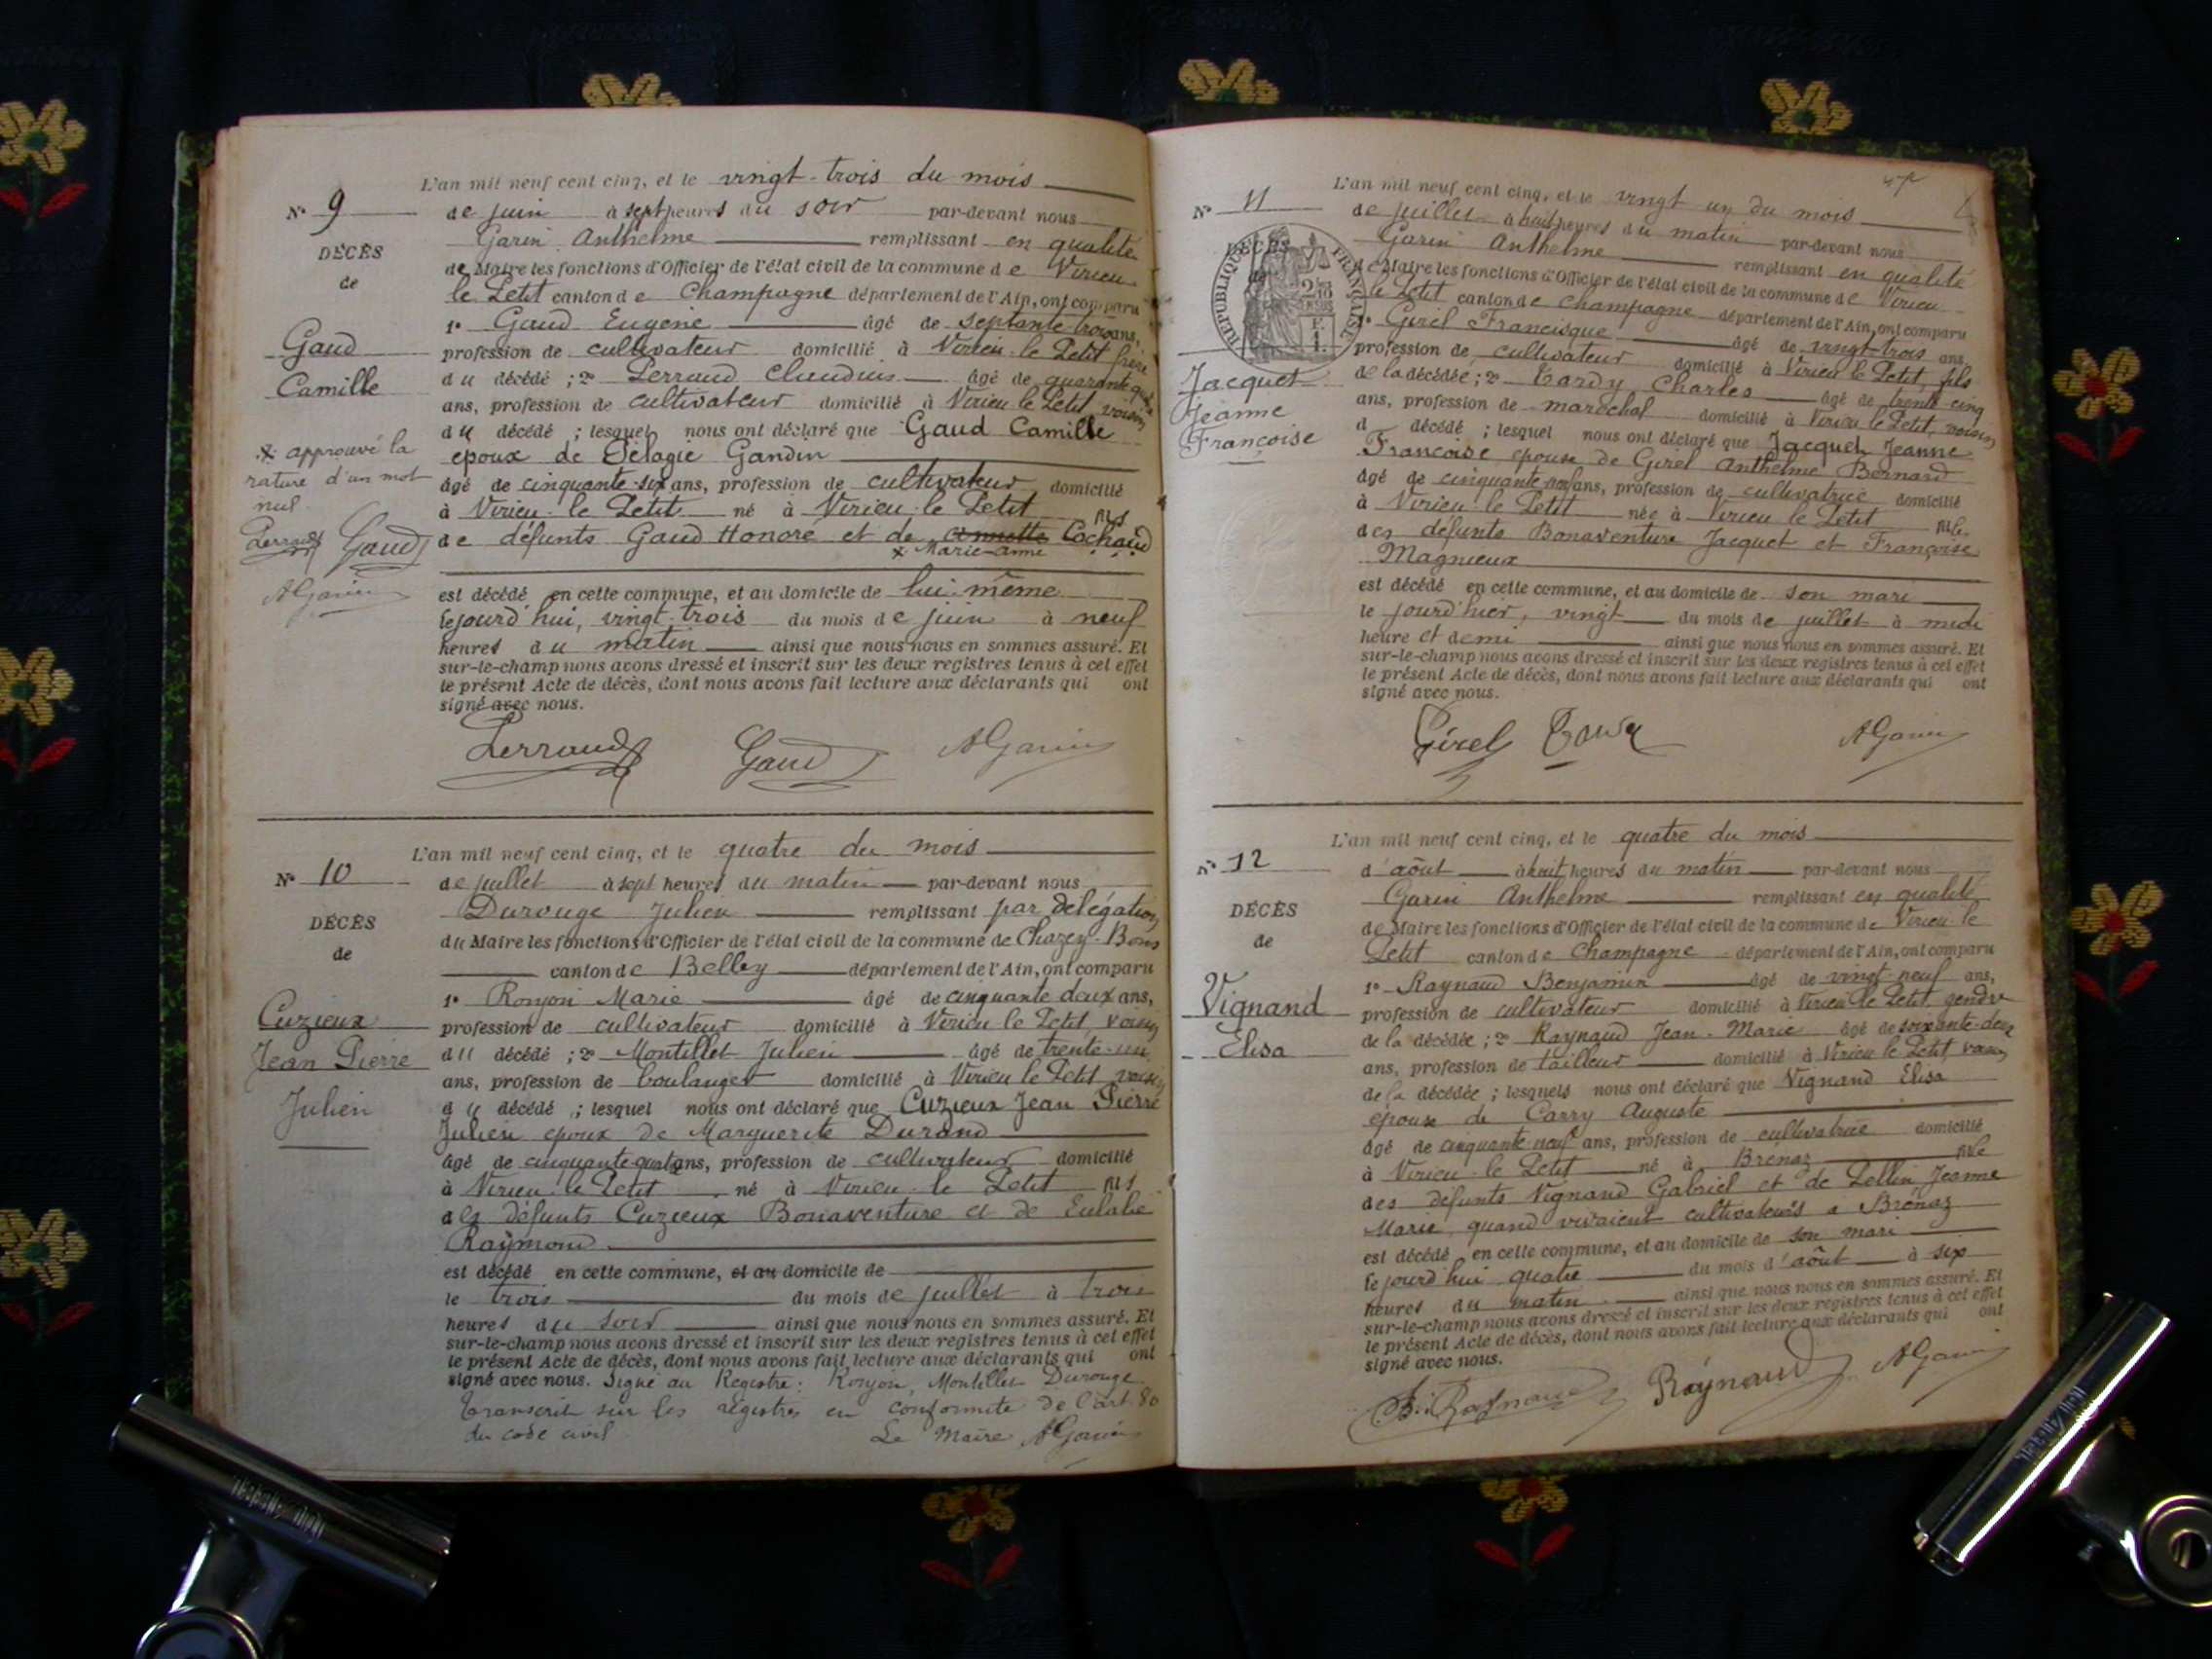 L'an mil neuf cent cinq, et le vingt-trois du mois
N° 9 de juin à sept heures du soir par-devant nous
Garin Anthelme remplissant en qualité
DÉCÈS
de Maire les fonctions d'Officier de l'état civil de la commune de Virieu
de
le Petit canton de Champagne département de l'Ain, ont comparu
1° Gaud Eugène âgé de septante-trois ans,
Gaud
profession de cultivateur domicilié à Virieu le Petit frère
Camille
du décédé ; 2° Perraud Claudius âgé de quarante
ans, profession de cultivateur domicilié à Virieu le Petit voisin
du décédé ; lesquels nous ont déclaré que Gaud Camille
x approuvé la
époux de Pélagie Gandin
rature d'un mot
âgé de cinquante-six ans, profession de cultivateur domicilié
nul.
à Virieu-le Petit né à Virieu-le Petit fils
Perraud Gaud
de défunts Gaud Honoré et de annette Cochaud
x Marie-anne
AGarin
est décédé en cette commune, et au domicile de lui-même
le jourd'hui, vingt-trois du mois de juin à neuf
heures du matin ainsi que nous nous en sommes assuré. Et
sur-le-champ nous avons dressé et inscrit sur les deux registres tenus à cet effet
le présent Acte de décès, dont nous avons fait lecture aux déclarants qui ont
signé avec nous.
Perraud Gaud AGarin
L'an mil neuf cent cinq, et le quatre du mois
N° 10 de juillet à sept heures du matin par-devant nous
Durouge Julien remplissant par délégation
DÉCÈS
du Maire les fonctions d'Officier de l'état civil de la commune de Chazey-Bons
de
canton de Belley département de l'Ain, ont comparu
1° Ronjon Marie âgé de cinquante deux ans,
Cuzieux
profession de cultivateur domicilié à Virieu le Petit, voisin
Jean Pierre
du décédé ; 2° Montillet Julien âgé de trente-un
ans, profession de boulanger domicilié à Virieu le Petit voisin
Julien
du décédé ; lesquel nous ont déclaré que Cuzieux Jean Pierre
Julien époux de Marguerite Durand
âgé de cinquante-quatre ans, profession de cultivateur domicilié
à Virieu-le Petit né à Virieu-le Petit fils
des défunts Cuzieux Bonaventure et de Eulalie
Raymond
est décédé en cette commune, et au domicile de
le trois du mois de juillet à trois
heures du soir ainsi que nous nous en sommes assuré. Et
sur-le-champ nous avons dressé et inscrit sur les deux registres tenus à cet effet
le présent Acte de décès, dont nous avons fait lecture aux déclarants qui ont
signé avec nous. Signé au Registre: Ronjon, Montillet Durouge
Transcrit sur les registres en conformité de l'art. 80
du code civil. Le Maire AGarin
L'an mil neuf cent cinq, et le vingt un du mois
N° 11 de juillet à huit heures du matin par-devant nous
Garin Anthelme remplissant en qualité
DÉCÈS
RÉPUBLIQUE FRANÇAISE
de Maire les fonctions d'Officier de l'état civil de la commune de Virieu
le Petit canton de Champagne département de l'Ain, ont comparu
1° Girel Francisque âgé de vingt-trois ans,
profession de cultivateur domicilié à Virieu le Petit, fils
Jacquet
de la décédée ; 2° Tardy Charles âgé de trente cinq
Jeanne
ans, profession de maréchal domicilié à Virieu le Petit, voisin
Françoise
d décédé ; lesquel nous ont déclaré que Jacquet Jeanne
Francoise épouse de Girel Anthelme Bernard
âgé de cinquante ans, profession de cultivatrice domicilié
à Virieu-le Petit née à Virieu le Petit fille
des défunts Bonaventure Jacquet et Françoise
Magnieux
est décédé en cette commune, et au domicile de son mari
le jourd'hier, vingt du mois de juillet à midi
heure et demi ainsi que nous nous en sommes assuré. Et
sur-le-champ nous avons dressé et inscrit sur les deux registres tenus à cet effet
le présent Acte de décès, dont nous avons fait lecture aux déclarants qui ont
signé avec nous.
Girel Tardy AGarin
L'an mil neuf cent cinq, et le quatre du mois
N° 12 d'août à huit heures du matin par-devant nous
Garin Anthelme remplissant en qualité
DÉCÈS
de Maire les fonctions d'Officier de l'état civil de la commune de Virieu-le
de
Petit canton de Champagne département de l'Ain, ont comparu
1° Raynaud Benjamin âgé de vingt-neuf ans,
Vignand
profession de cultivateur domicilié à Virieu le Petit, gendre
Elisa
de la décédée ; 2° Raynaud Jean-Marie âgé de soixante-deux
ans, profession de tailleur domicilié à Virieu le Petit, voisin
de la décédée ; lesquels nous ont déclaré que Vignand Elisa
épouse de Carry Auguste
âgé de cinquante-neuf ans, profession de cultivatrice domicilié
à Virieu-le Petit né à Brénaz fille
des défunts Vignand Gabriel et de Pellin Jeanne
Marie, quand vivaient cultivateurs à Brénaz
est décédé en cette commune, et au domicile de son mari
le jourd'hui quatre du mois d'août à six
heures du matin ainsi que nous nous en sommes assuré. Et
sur-le-champ nous avons dressé et inscrit sur les deux registres tenus à cet effet
le présent Acte de décès, dont nous avons fait lecture aux déclarants qui ont
signé avec nous.
B. Raynaud Raynaud AGarin